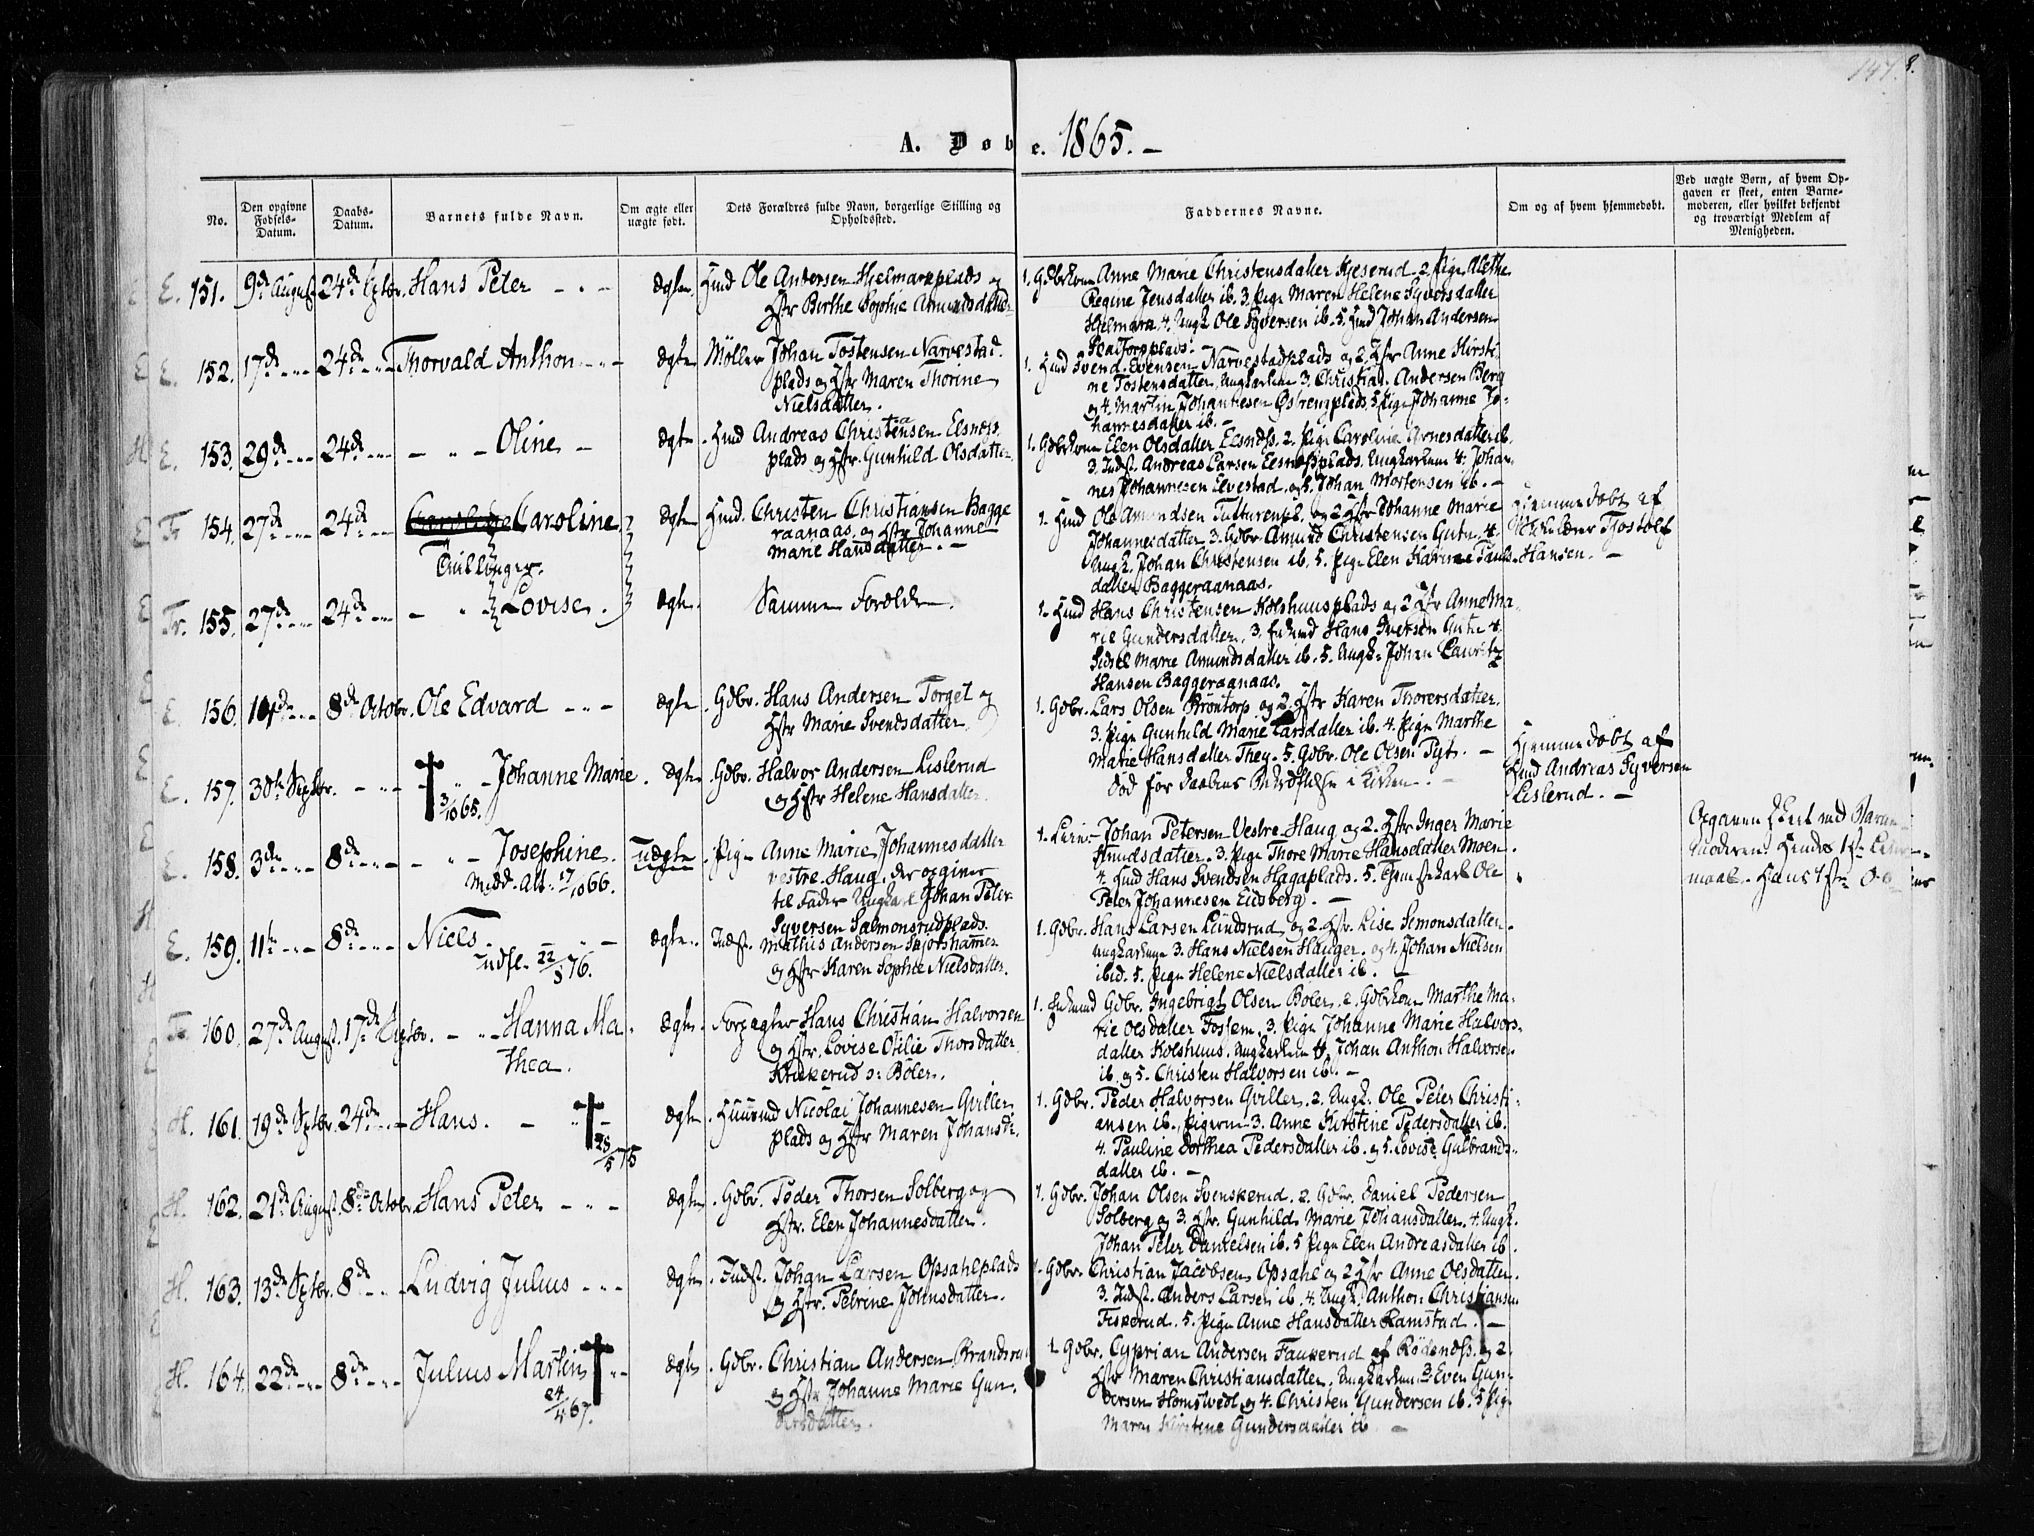 147.
8.
A. Døbe. 1865. –
No.
Den opgivne Fødsels-Datum.
Daabs-Datum.
Barnets fulde Navn.
Om ægte eller uægte født.
Dets Forældres fulde Navn, borgerlige Stilling og Opholdssted.
Faddernes Navne.
Om og af hvem hjemmedøbt.
Ved uægte Børn, af hvem Opgaven er skeet, enten Barnemoderen, eller hvilket bekjendt og troværdigt Medlem af Menigheden.
E. 151. 9de August 24de Sptbr. Hans Peter – . – Ægte. Hmd Ole Andersen Hjelmarkplads og
Hstr Birthe Sophie Amundsdatter
1. Gdbrkone Anne Marie Christensdatter Kjeserud 2. Pige Alethe
Regine Jensdatter ib. 3. Pige Maren Helene Syversdatter
Hjelmark 4. Ungk. Ole Syversen ib. 5. Hmd Johan Andersen
plads.
E. 152. 17de 24de Thorvald Anthon Ægte Møller Johan Tostensen Narvestad
plads og Hstr Maren Thorine
Nielsdatter.
1. Hmd Svend Evensen Narvestadplads og 2. Hstr Anne Kirsti
ne Tostensdatter, Ungkarlene 3. Christian Andersen Berg
og 4. Martin Johannesen Østrengplads, 5. Pige Johanne Jo-
hannesdatter ib. –
E. 153. 29de 24de – " – Oline – Ægte . Hmd Andreas Christensen Eisness
plads og Hstr. Gunhild Olsdatter
1. Gdbrkone Elen Olsdatter Eisness. 2. Pige Caroline Arnesdatter ib.
3. Indst. Andreas Larsen Eisnessplads. Ungkarlene 4. Johan-
nes Johannesen Elvestad, og 5. Johan Mortensen ib. –
Fr 154. 27de 24de Caroline Ægte Hmd. Christen Christiansen Bagge
raanaas, og Hstr Johanne
Marie Hansdatter. –
Tvillinger.
1. Hmd Ole Amundsen og 2 Hstr Johanne Marie
Johannesdatter 3. Gdbr Amund Christensen Gutu, 4.
Ungk. Johan Christensen ib, 5. Pige Elen Karine Pauls-
datter Baggeraanaas.
Hjemmedøbt af
Kirkelærer Tjostolf
Hansen. –
Fr. 155. 27de 24de – " Lovise. Ægte. Samme Forældre.
1. Hmd Hans Christensen Kolshuusplads og 2 Hstr Anne Ma-
rie Gundersdatter, 3. Enkemd Hans Iversen Gutu 4.
Sidsel Marie Amundsdatter ib. 5. Ungk. Johan Lauritz
Hansen Baggeraanaas.
E. 156. 8de Octobr. Ole Edvard – – – Ægte . Gdbr. Hans Andersen Torget og
Hstr Marie Svendsdatter
1. Gdbr. Lars Olsen Brøntorp og 2. Hstr Karen Thorersdatter.
3. Pige Gunhild Marie Larsdatter ib. 4. Pige Marthe
Marie Hansdatter They. 5. Gdbr. Ole Olsen –
E. 157. 30te Sptbr. – " – Johanne Marie . Ægte . Gdbr. Halvor Andersen Lislerud
og Hstr Helene Hansdatter.
3/10 65.
Død før Daabens Bekræftelse i Kirken. –
Hjemmedøbt af
Hmd Andreas Syversen
Lislerud. –
E. 158. 3de 8de – " – Josephine. Uægte . Pige Anne Marie Johannesdatter
vestre Haug, der opgiver
til Fader Ungkarl Johan Peter
Syversen Salmonsrudplads.
Medd. Att. 17/10 66.
1. Johan Petersen Vestre Haug og 2. Hstr Inger Marie
Knudsdatter. 3. Pige Thore Marie Hansdatter Moen.
4. Hmd Hans Svendsen Hagaplads. 5. Ole
Peter Johannesen Eidsberg. –
Opgaven skeet ved Barne-
moderen. Hendes 1ste Leier-
maal. Hans 1ste
E. 159. 11te 8de Niels. Ægte. Indst. Mathis Andersen
og Hstr Karen Sophie Nielsdatter.
Udfl. 22/3 76.
1. Gdbr. Hans Larsen Lundsrud og 2. Hstr. Lise Simonsdatter.
Ungkarlene 3. Hans Nielsen Hauger. og 4. Johan Nielsen
ibid. 5. Pige Helene Nielsdatter ib. –
Fr 160. 27de August. 17de Sptbr. – " – Hanna Ma-
thea. Ægte. Forpagter Hans Christian Halvorsen
og Hstr. Lovise Otilie Thorsdatter
Krukerud o: Bøler.
1. Enkemd Gdbr. Ingebrigt Olsen Bøler, 2. Gdbrkone Marthe Ma-
rie Olsdatter Fossem. 3. Pige Johanne Marie Halvors-
datter Kolshuus. Ungkarlene 4. Johan Anthon Halvorsen
ib. og 5. Christen Halvorsen ib. –
H. 161. 19de Sptbr. 24de Hans. – " Ægte . Huusmd Nicolai Johannesen Gviller
plads og Hstr Maren Johansdr.
28/5 75
1. Gdbr. Peder Halvorsen Gviller. 2. Ungk. Ole Peter Christi-
ansen ib., Pigerne 3. Anne Kirstine Pedersdatter ib.
4. Pauline Dorthea Pedersdatter ib. og 5. Lovise Gulbrands-
datter ib. –
H. 162. 21de August. 8de Octobr. Hans Peter – – – Ægte . Gdbr. Peder Thorsen Solberg og
Hstr. Elen Johannesdatter.
1. Gdbr. Johan Olsen Svenskerud. 2. Gdbr. Daniel Pedersen
Solberg og 3. Hstr. Gunhild Marie Johansdatter. 4. Ungk.
Johan Peter Danielsen ib. 5 Pige Elen Andreasdatter ib.
H. 163. 13de Sptbr. 8de Ludvig Julius – – – Ægte . Indst. Johan Larsen Opsahlplads
og Hstr. Petrine Johnsdatter.
1. Gdbr. Christian Jacobsen Opsahl og 2 Hstr Anne Olsdatter.
3. Indst. Anders Larsen ib. 4. Ungk. Anthon Christiansen
Fiskerud. 5. Pige Anne Hansdatter Ramstad. –
H. 164. 22de 8de Julius Martin Ægte . Gdbr. Christian Andersen Brandsrud
og Hstr Johanne Marie Gun-
dersdatter.
24/4 67.
1 Gdbr. Cyprian Andersen Faukerud af Rødenæss. og 2.
Hstr Maren Christiansdatter. Ungkarlene 3 Even Gun-
dersen Homstvedt og 4. Christen Gundersen ib. 5 Pige
Maren Kirstine Gundersdatter ib –